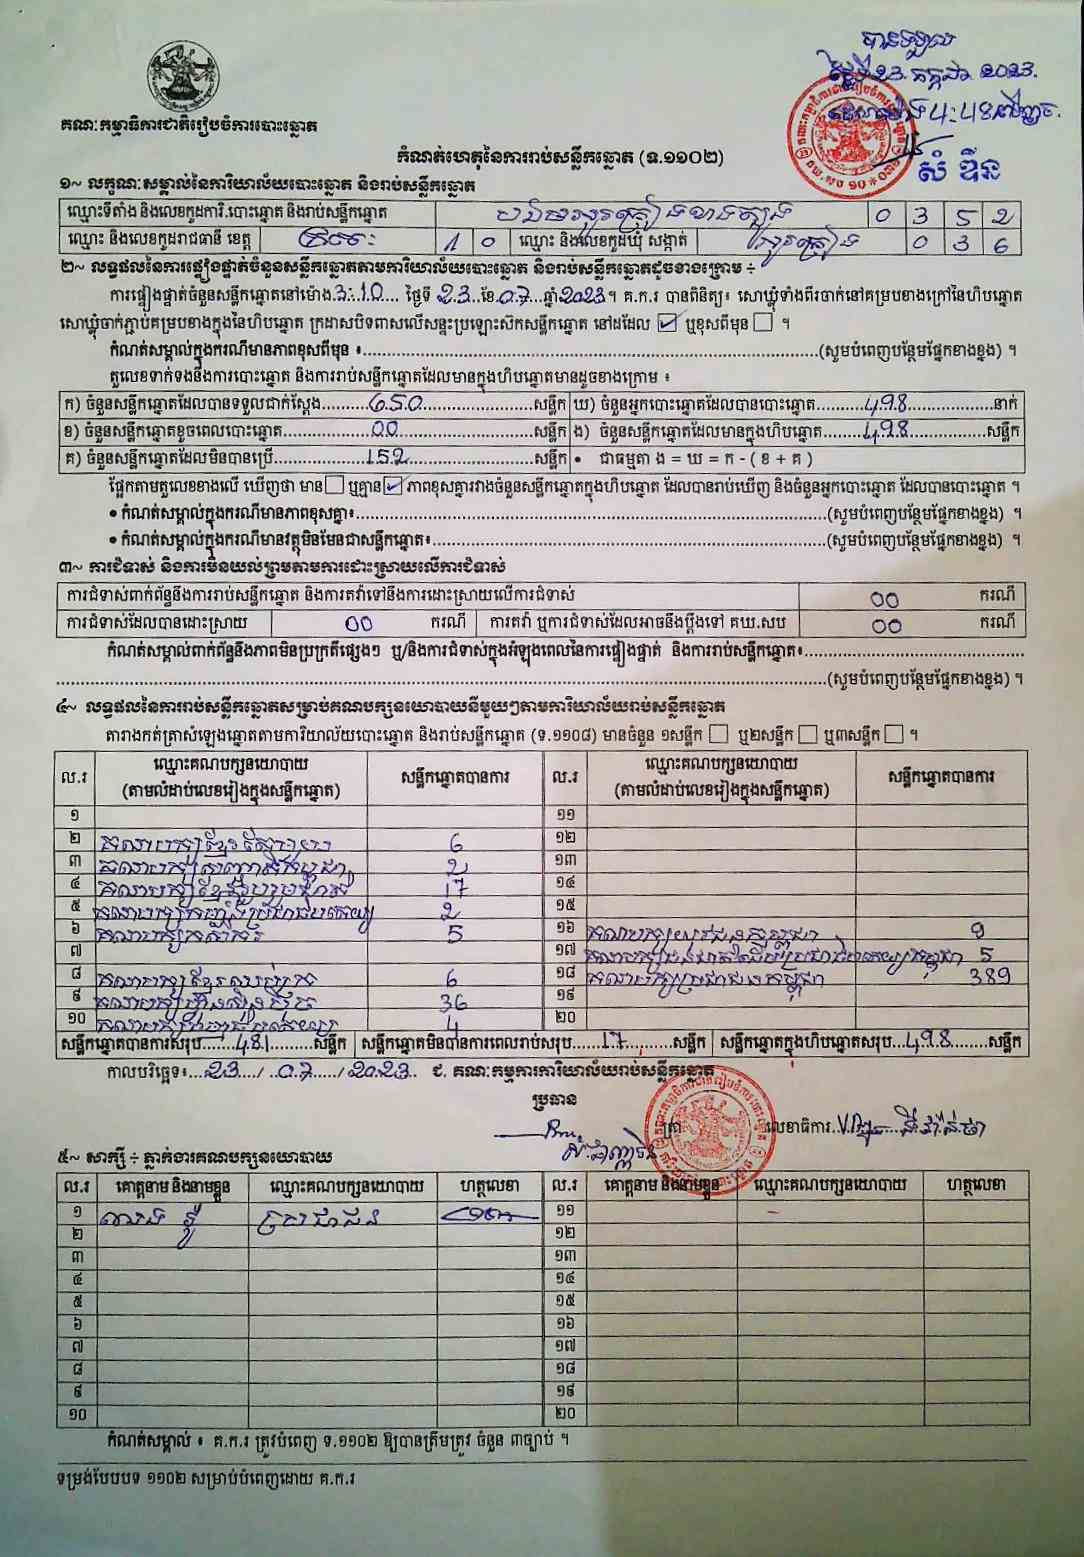 បានទទួល
ថ្ងៃទី 23. កក្កដា. 2023.
វេលាម៉ោង 4:48 នាទីល្ងាច.
សំ ឌីន
គណៈកម្មាធិការជាតិរៀបចំការបោះឆ្នោត
កំណត់ហេតុនៃការរាប់សន្លឹកឆ្នោត (ទ.១១០២)
១~ លក្ខណៈសម្គាល់នៃការិយាល័យបោះឆ្នោត និងរាប់សន្លឹកឆ្នោត
ឈ្មោះទីតាំង និងលេខកូដការិ.បោះឆ្នោត និងរាប់សន្លឹកឆ្នោត 0 3 5 2
ឈ្មោះ និងលេខកូដរាជធានី ខេត្ត ក្រចេះ 1 0 ឈ្មោះ និងលេខកូដឃុំ សង្កាត់ 0 3 6
២~ លទ្ធផលនៃការផ្ទៀងផ្ទាត់ចំនួនសន្លឹកឆ្នោតតាមការិយាល័យបោះឆ្នោត និងរាប់សន្លឹកឆ្នោតដូចខាងក្រោម ÷
ការផ្ទៀងផ្ទាត់ចំនួនសន្លឹកឆ្នោតនៅម៉ោង.3:10.... ថ្ងៃទី 23.ខែ.07.ឆ្នាំ2023។ គ.ក.រ បានពិនិត្យ៖ សោឃ្លុំទាំងពីរចាក់នៅគម្របខាងក្រៅនៃហិបឆ្នោត
សោឃ្លុំចាក់ភ្ជាប់គម្របខាងក្នុងនៃហិបឆ្នោត ក្រដាសបិទពាសលើសន្ទះប្រឡោះស៊កសន្លឹកឆ្នោត នៅដដែល ☑ ឬខុសពីមុន ☐ ។
កំណត់សម្គាល់ក្នុងករណីមានភាពខុសពីមុន ៖..........(សូមបំពេញបន្ថែមផ្នែកខាងខ្នង) ។
តួលេខទាក់ទងនឹងការបោះឆ្នោត និងការរាប់សន្លឹកឆ្នោតដែលមានក្នុងហិបឆ្នោតមានដូចខាងក្រោម ៖
ក) ចំនួនសន្លឹកឆ្នោតដែលបានទទួលជាក់ស្តែង..........650..........សន្លឹក ឃ) ចំនួនអ្នកបោះឆ្នោតដែលបានបោះឆ្នោត..........498..........នាក់
ខ) ចំនួនសន្លឹកឆ្នោតខូចពេលបោះឆ្នោត..........00..........សន្លឹក ង) ចំនួនសន្លឹកឆ្នោតដែលមានក្នុងហិបឆ្នោត..........498..........សន្លឹក
គ) ចំនួនសន្លឹកឆ្នោតដែលមិនបានប្រើ..........152..........សន្លឹក • ជាធម្មតា ង = ឃ = ក - ( ខ + គ )
ផ្អែកតាមតួលេខខាងលើ ឃើញថា មាន ☐ ឬគ្មាន ☑ ភាពខុសគ្នារវាងចំនួនសន្លឹកឆ្នោតក្នុងហិបឆ្នោត ដែលបានរាប់ឃើញ និងចំនួនអ្នកបោះឆ្នោត ដែលបានបោះឆ្នោត ។
• កំណត់សម្គាល់ក្នុងករណីមានភាពខុសគ្នា៖..........(សូមបំពេញបន្ថែមផ្នែកខាងខ្នង) ។
• កំណត់សម្គាល់ក្នុងករណីមានវត្ថុមិនមែនជាសន្លឹកឆ្នោត៖..........(សូមបំពេញបន្ថែមផ្នែកខាងខ្នង) ។
៣~ ការជំទាស់ និងការមិនយល់ព្រមតាមការដោះស្រាយលើការជំទាស់
ការជំទាស់ពាក់ព័ន្ធនឹងការរាប់សន្លឹកឆ្នោត និងការតវ៉ាទៅនឹងការដោះស្រាយលើការជំទាស់ 00 ករណី
ការជំទាស់ដែលបានដោះស្រាយ 00 ករណី ការតវ៉ា ឬការជំទាស់ដែលអាចនឹងប្តឹងទៅ គឃ.សប 00 ករណី
កំណត់សម្គាល់ពាក់ព័ន្ធនឹងភាពមិនប្រក្រតីផ្សេងៗ ឬ/និងការជំទាស់ក្នុងអំឡុងពេលនៃការផ្ទៀងផ្ទាត់ និងការរាប់សន្លឹកឆ្នោត៖..........
..........(សូមបំពេញបន្ថែមផ្នែកខាងខ្នង) ។
៤~ លទ្ធផលនៃការរាប់សន្លឹកឆ្នោតសម្រាប់គណបក្សនយោបាយនីមួយៗតាមការិយាល័យរាប់សន្លឹកឆ្នោត
តារាងកត់ត្រាសំឡេងឆ្នោតតាមការិយាល័យបោះឆ្នោត និងរាប់សន្លឹកឆ្នោត (ទ.១១០៨) មានចំនួន ១សន្លឹក ☐ ឬ២សន្លឹក ☐ ឬ៣សន្លឹក ☐ ។
ល.រ ឈ្មោះគណបក្សនយោបាយ (តាមលំដាប់លេខរៀងក្នុងសន្លឹកឆ្នោត) សន្លឹកឆ្នោតបានការ ល.រ ឈ្មោះគណបក្សនយោបាយ (តាមលំដាប់លេខរៀងក្នុងសន្លឹកឆ្នោត) សន្លឹកឆ្នោតបានការ
១ ១១
២ គណបក្សខ្មែរតែមួយ 6 ១២
៣ 2 ១៣
៤ គណបក្សខ្មែររួបរួមជាតិ 17 ១៤
៥ 2 ១៥
៦ គណបក្សកសិករ 5 ១៦ 9
៧ ១៧ 5
៨ 6 ១៨ គណបក្សប្រជាជនកម្ពុជា 389
៩ គណបក្សហ្វ៊ុនស៊ិនប៉ិច 36 ១៩
១០ 4 ២០
សន្លឹកឆ្នោតបានការសរុប......481.......សន្លឹក សន្លឹកឆ្នោតមិនបានការពេលរាប់សរុប......17.......សន្លឹក សន្លឹកឆ្នោតក្នុងហិបឆ្នោតសរុប...498.......សន្លឹក
កាលបរិច្ឆេទ៖...23..../..07...../.2023.. ជ. គណៈកម្មការការិយាល័យរាប់សន្លឹកឆ្នោត
ប្រធាន
ត្រា លេខាធិការ
៥~ សាក្សី ÷ ភ្នាក់ងារគណបក្សនយោបាយ
ល.រ គោត្តនាម និងនាមខ្លួន ឈ្មោះគណបក្សនយោបាយ ហត្ថលេខា ល.រ គោត្តនាម និងនាមខ្លួន ឈ្មោះគណបក្សនយោបាយ ហត្ថលេខា
១ ប្រជាជន ១១
២ ១២
៣ ១៣
៤ ១៤
៥ ១៥
៦ ១៦
៧ ១៧
៨ ១៨
៩ ១៩
១០ ២០
កំណត់សម្គាល់ ៖ គ.ក.រ ត្រូវបំពេញ ទ.១១០២ ឱ្យបានត្រឹមត្រូវ ចំនួន ៣ច្បាប់ ។
ទម្រង់បែបបទ ១១០២ សម្រាប់បំពេញដោយ គ.ក.រ